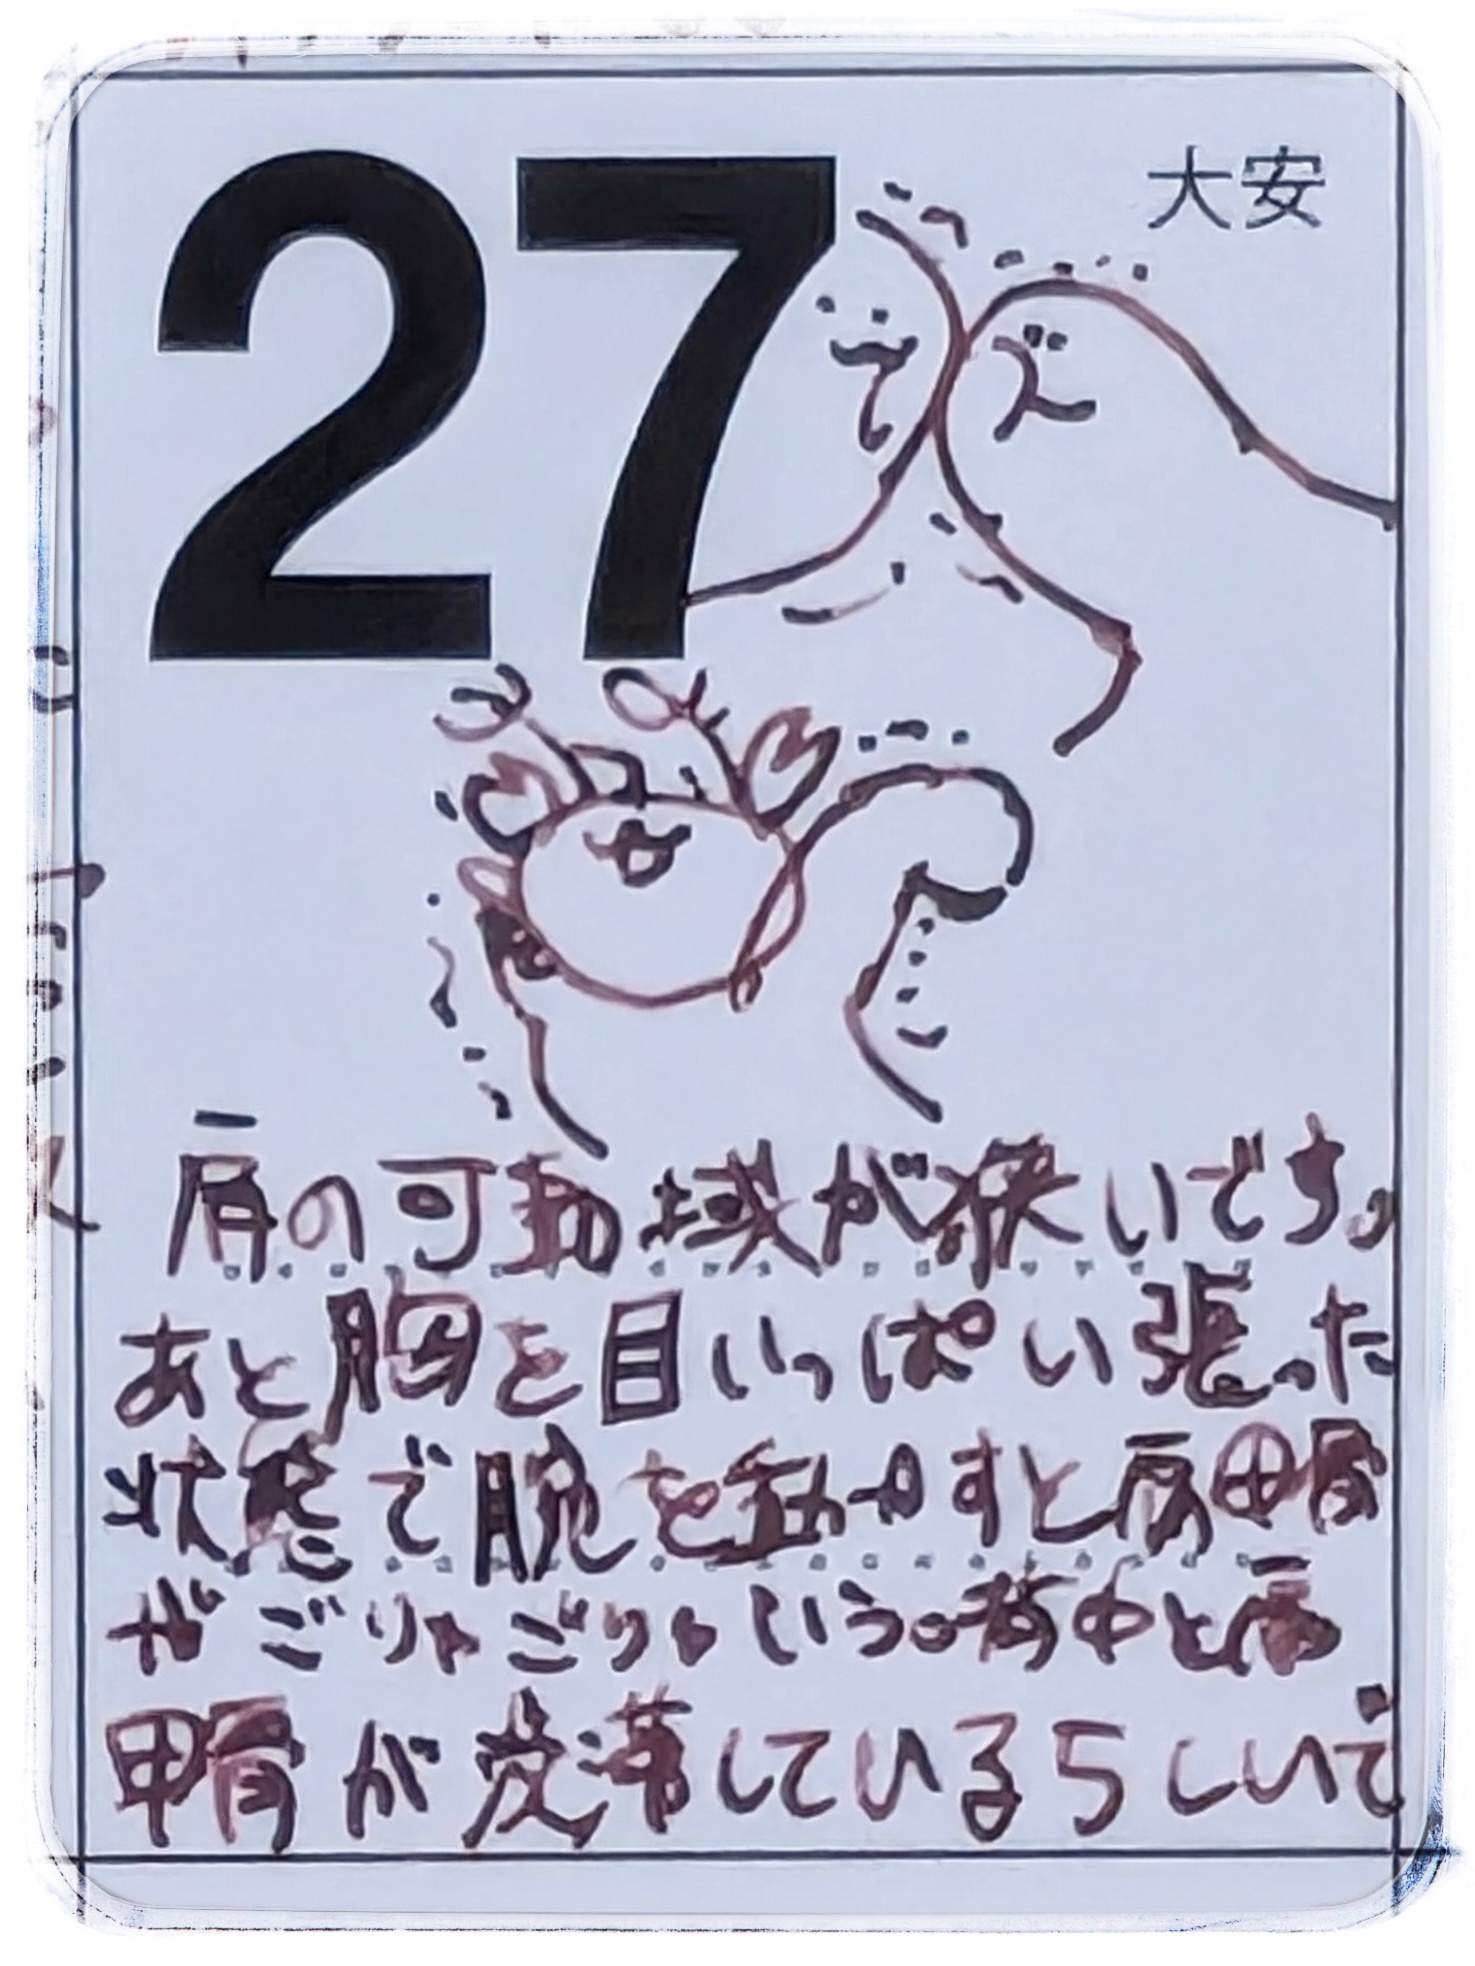 27
大安
肩の可動域が狭いです。
あと胸を目いっぱい張った
状態で腕を動かすと肩甲骨
がごりゃごりゃいう。背中と肩
甲骨が癒着しているらしいで